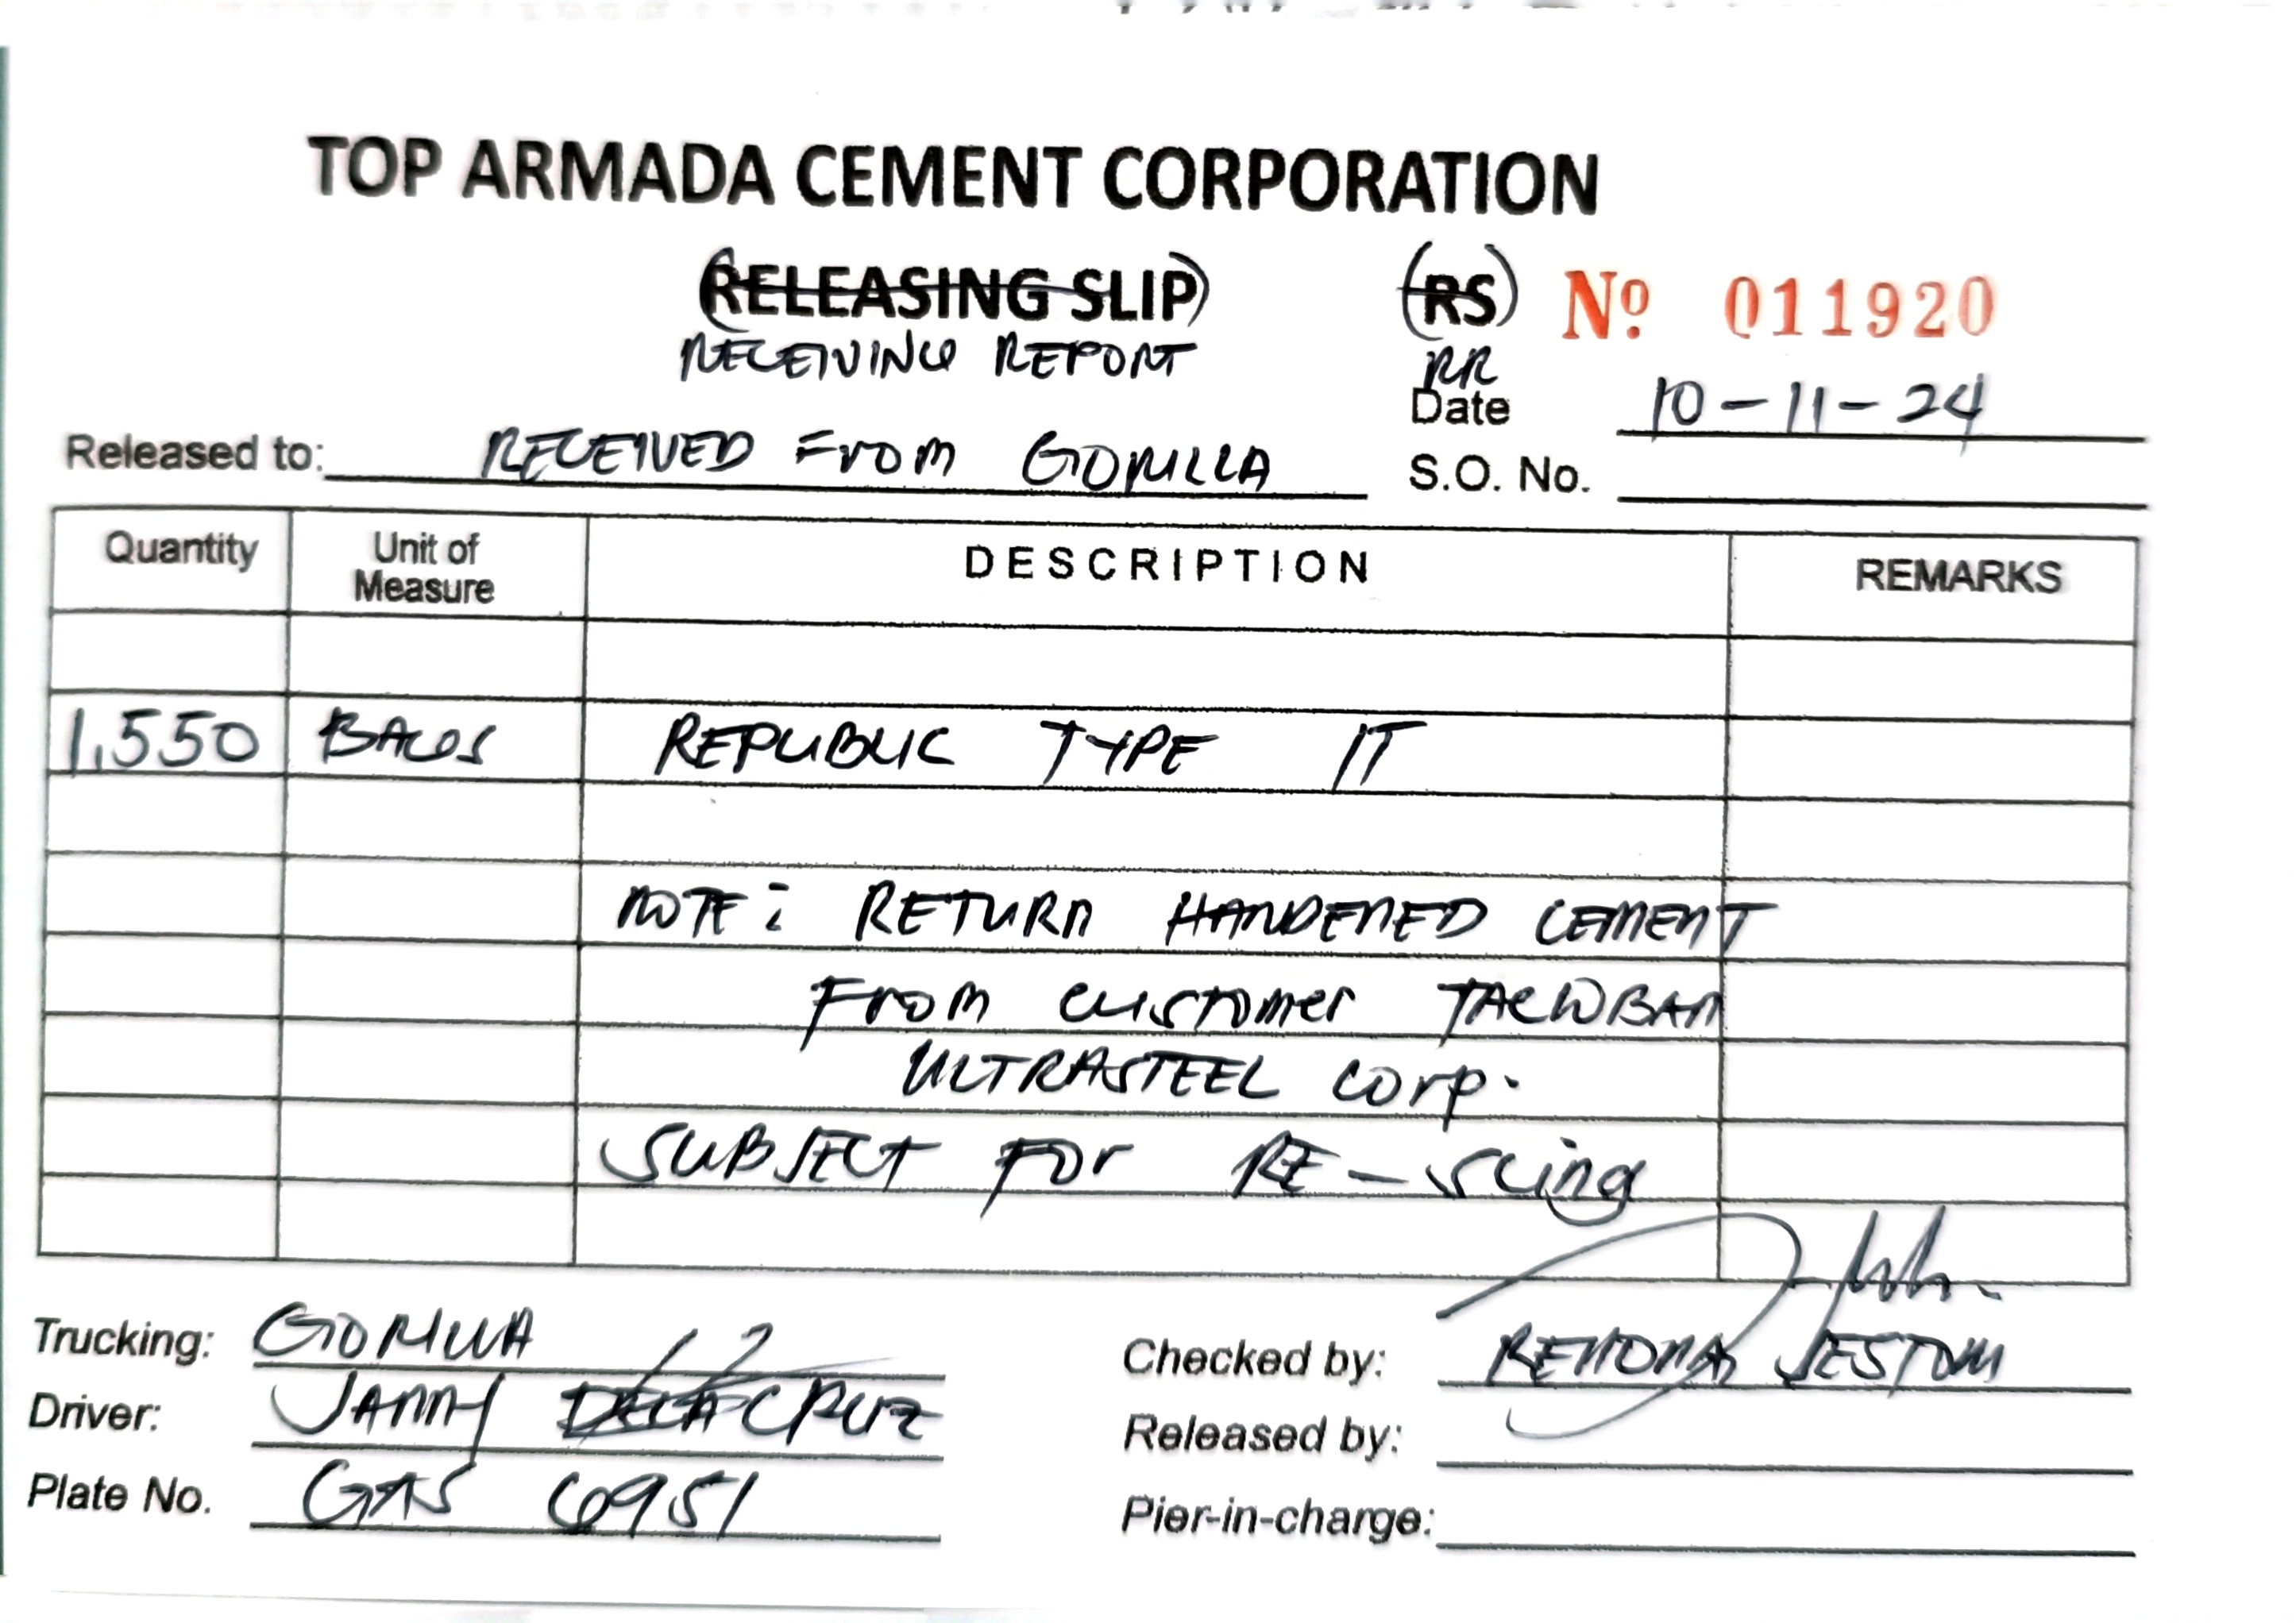 TOP ARMADA CEMENT CORPORATION
(RELEASING SLIP) (RS) Nº 011920
RECEIVING REPORT RR
Date 10-11-24
Released to: RECEIVED From GORILLA
S.O. No.
Quantity Unit of Measure DESCRIPTION REMARKS
1,550 BAGS REPUBLIC TYPE IT
NOTE: RETURN HARDENED CEMENT
From customer TACLOBAN
ULTRASTEEL corp.
SUBJECT For RE-sling
Trucking: GORILLA
Driver: JANNY DELA CRUZ
Plate No. GAS 6951
Checked by:
Released by:
Pier-in-charge: